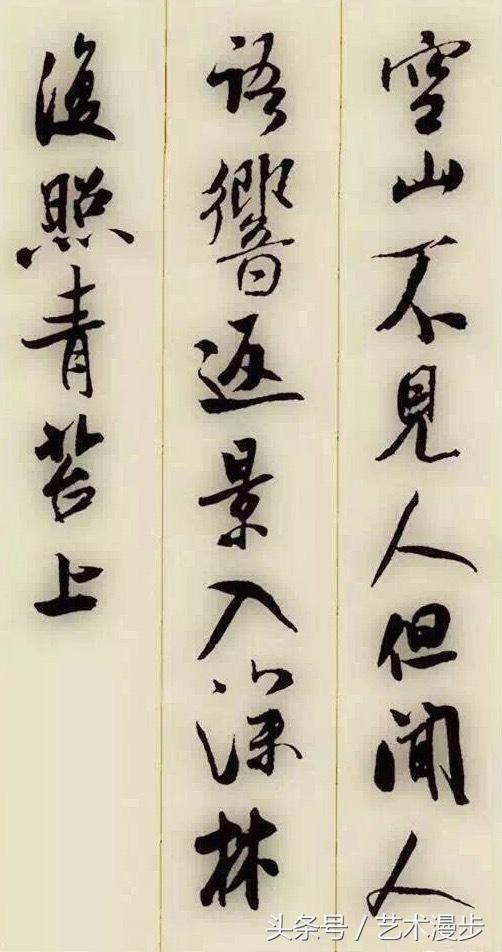 空山不見人但聞人
語響返景入深林
復照青苔上
头条号／艺术漫步